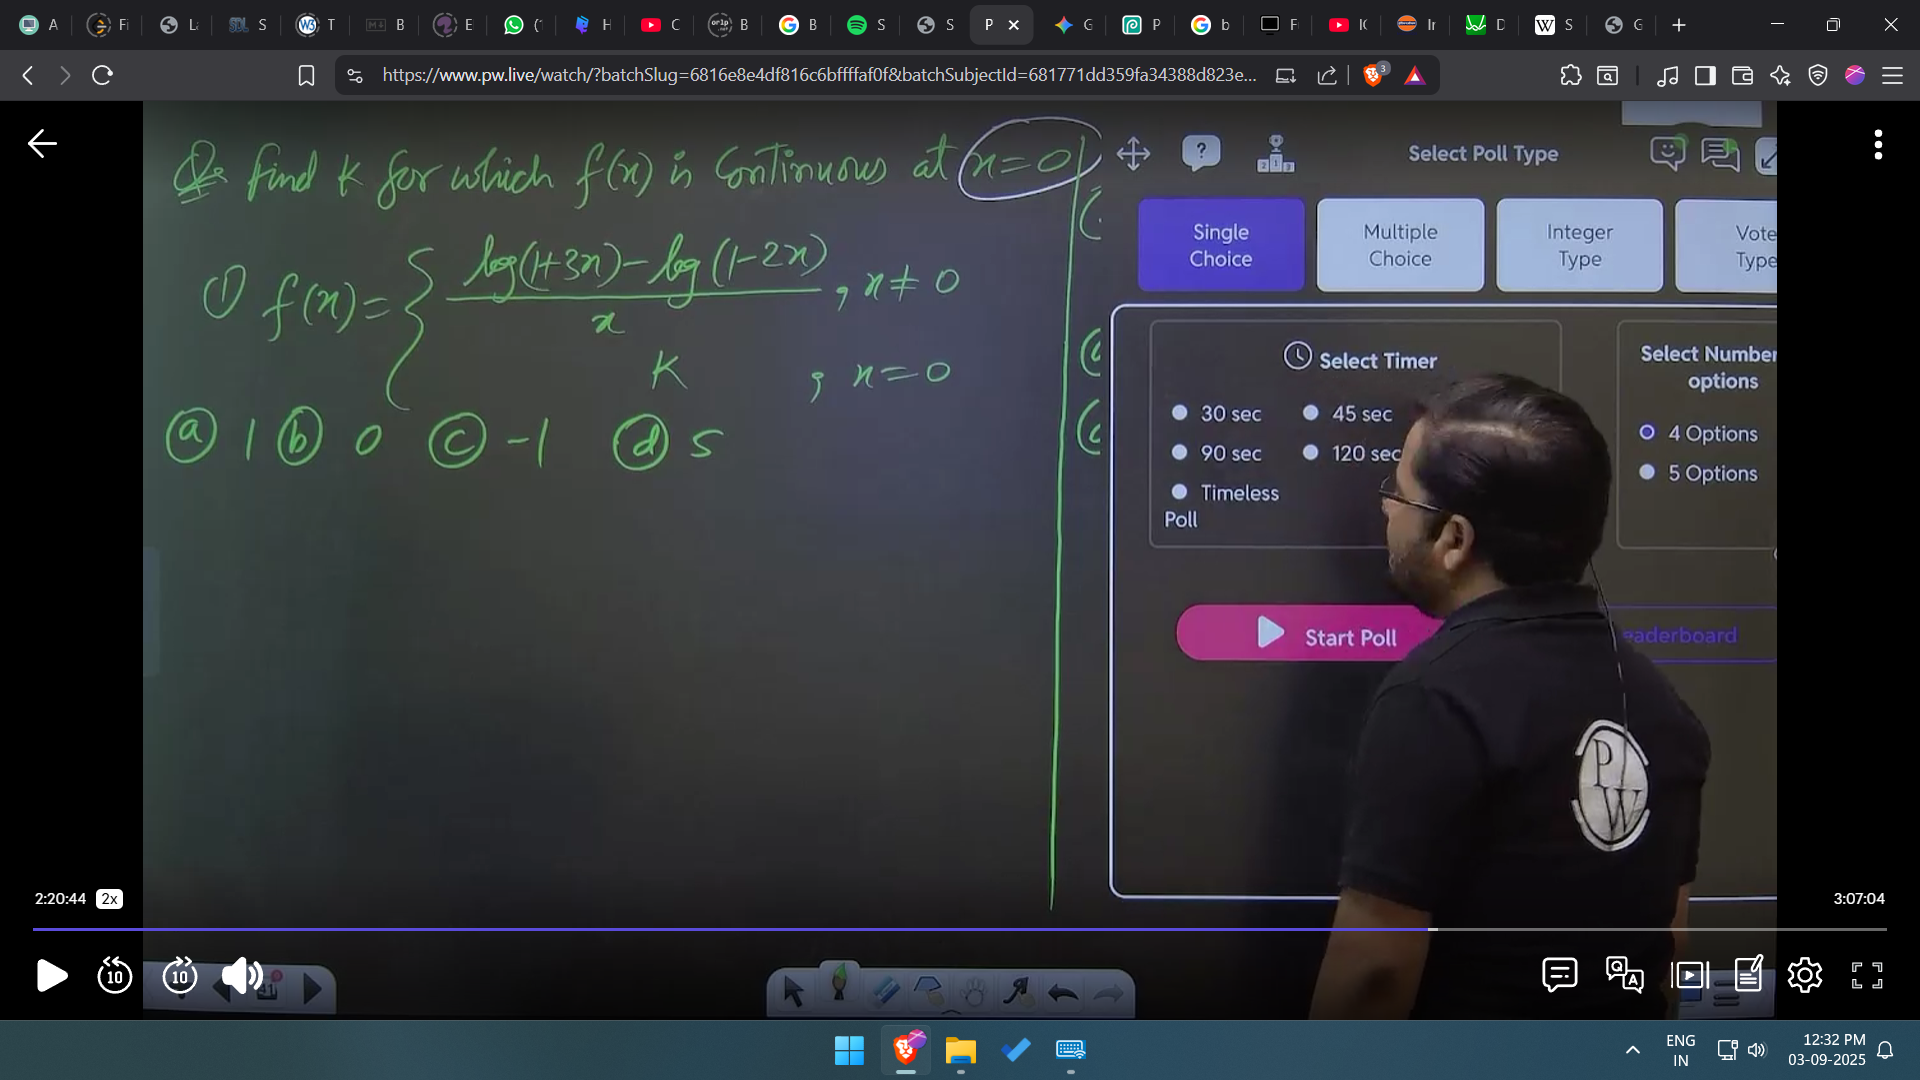 A
Fi
La
SQL S
W3 T
B
E
(1
H
C
B
B
S
S
P
G
P
b
F
I(
Ir
D
W S
G
https://www.pw.live/watch/?batchSlug=6816e8e4df816c6bffffaf0f&batchSubjectId=681771dd359fa34388d823e...
3
Q: find K for which f(x) is Continuous at x=0
① f(x)= { log(1+3x)-log(1-2x) / x , x≠0
K ; x=0
ⓐ 1 ⓑ 0 ⓒ -1 ⓓ 5
Select Poll Type
Single Choice
Multiple Choice
Integer Type
Vote Type
Select Timer
30 sec 45 sec
90 sec 120 sec
Timeless Poll
Select Number options
4 Options
5 Options
Start Poll
eaderboard
PW
2:20:44 2x
3:07:04
10 10
41
ENG
IN
12:32 PM
03-09-2025